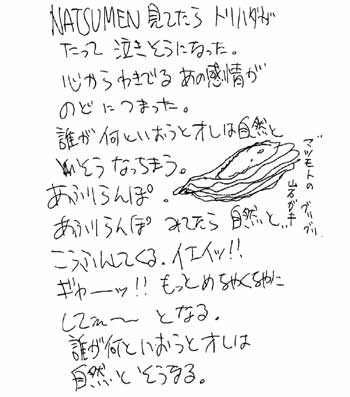 NATSUMEN 見てたら トリハダが
たって 泣きそうになった。
心から わきでる あの感情が
のどに つまった。
誰が 何といおうとオレは自然と
そう なっちまう。
あふりらんぽ。
あふりらんぽ みてたら 自然と…
こうふんしてくる。イエイッ!!
ギャーッ!! もっとめちゃくちゃに
してェ〜 となる。
誰が何といおうとオレは
自然と そうなる。
マツモトの
岩ガキ
ブリブリ